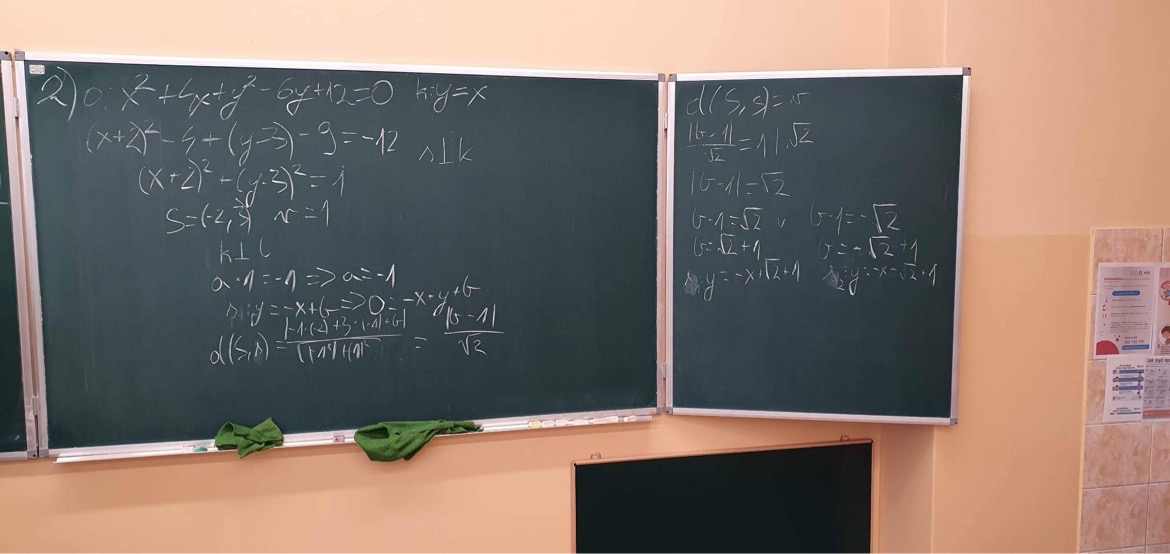 2) o: x² + 4x + y² - 6y + 12 = 0   k: y = x
(x+2)² - 4 + (y-3) - 9 = -12   s ⊥ k
(x+2)² + (y-3)² = 1
S = (-2, 3)   r = 1
k ⊥ l
a · 1 = -1 => a = -1
s: y = -x + b => 0 = -x - y + b
d(S, s) = = |b - 1| / √2
d(S, s) = r
|b - 1| / √2 = 1 | · √2
|b - 1| = √2
b - 1 = √2   v   b - 1 = -√2
b = √2 + 1   b = -√2 + 1
s₁: y = -x + √2 + 1   s₂: y = -x - √2 + 1